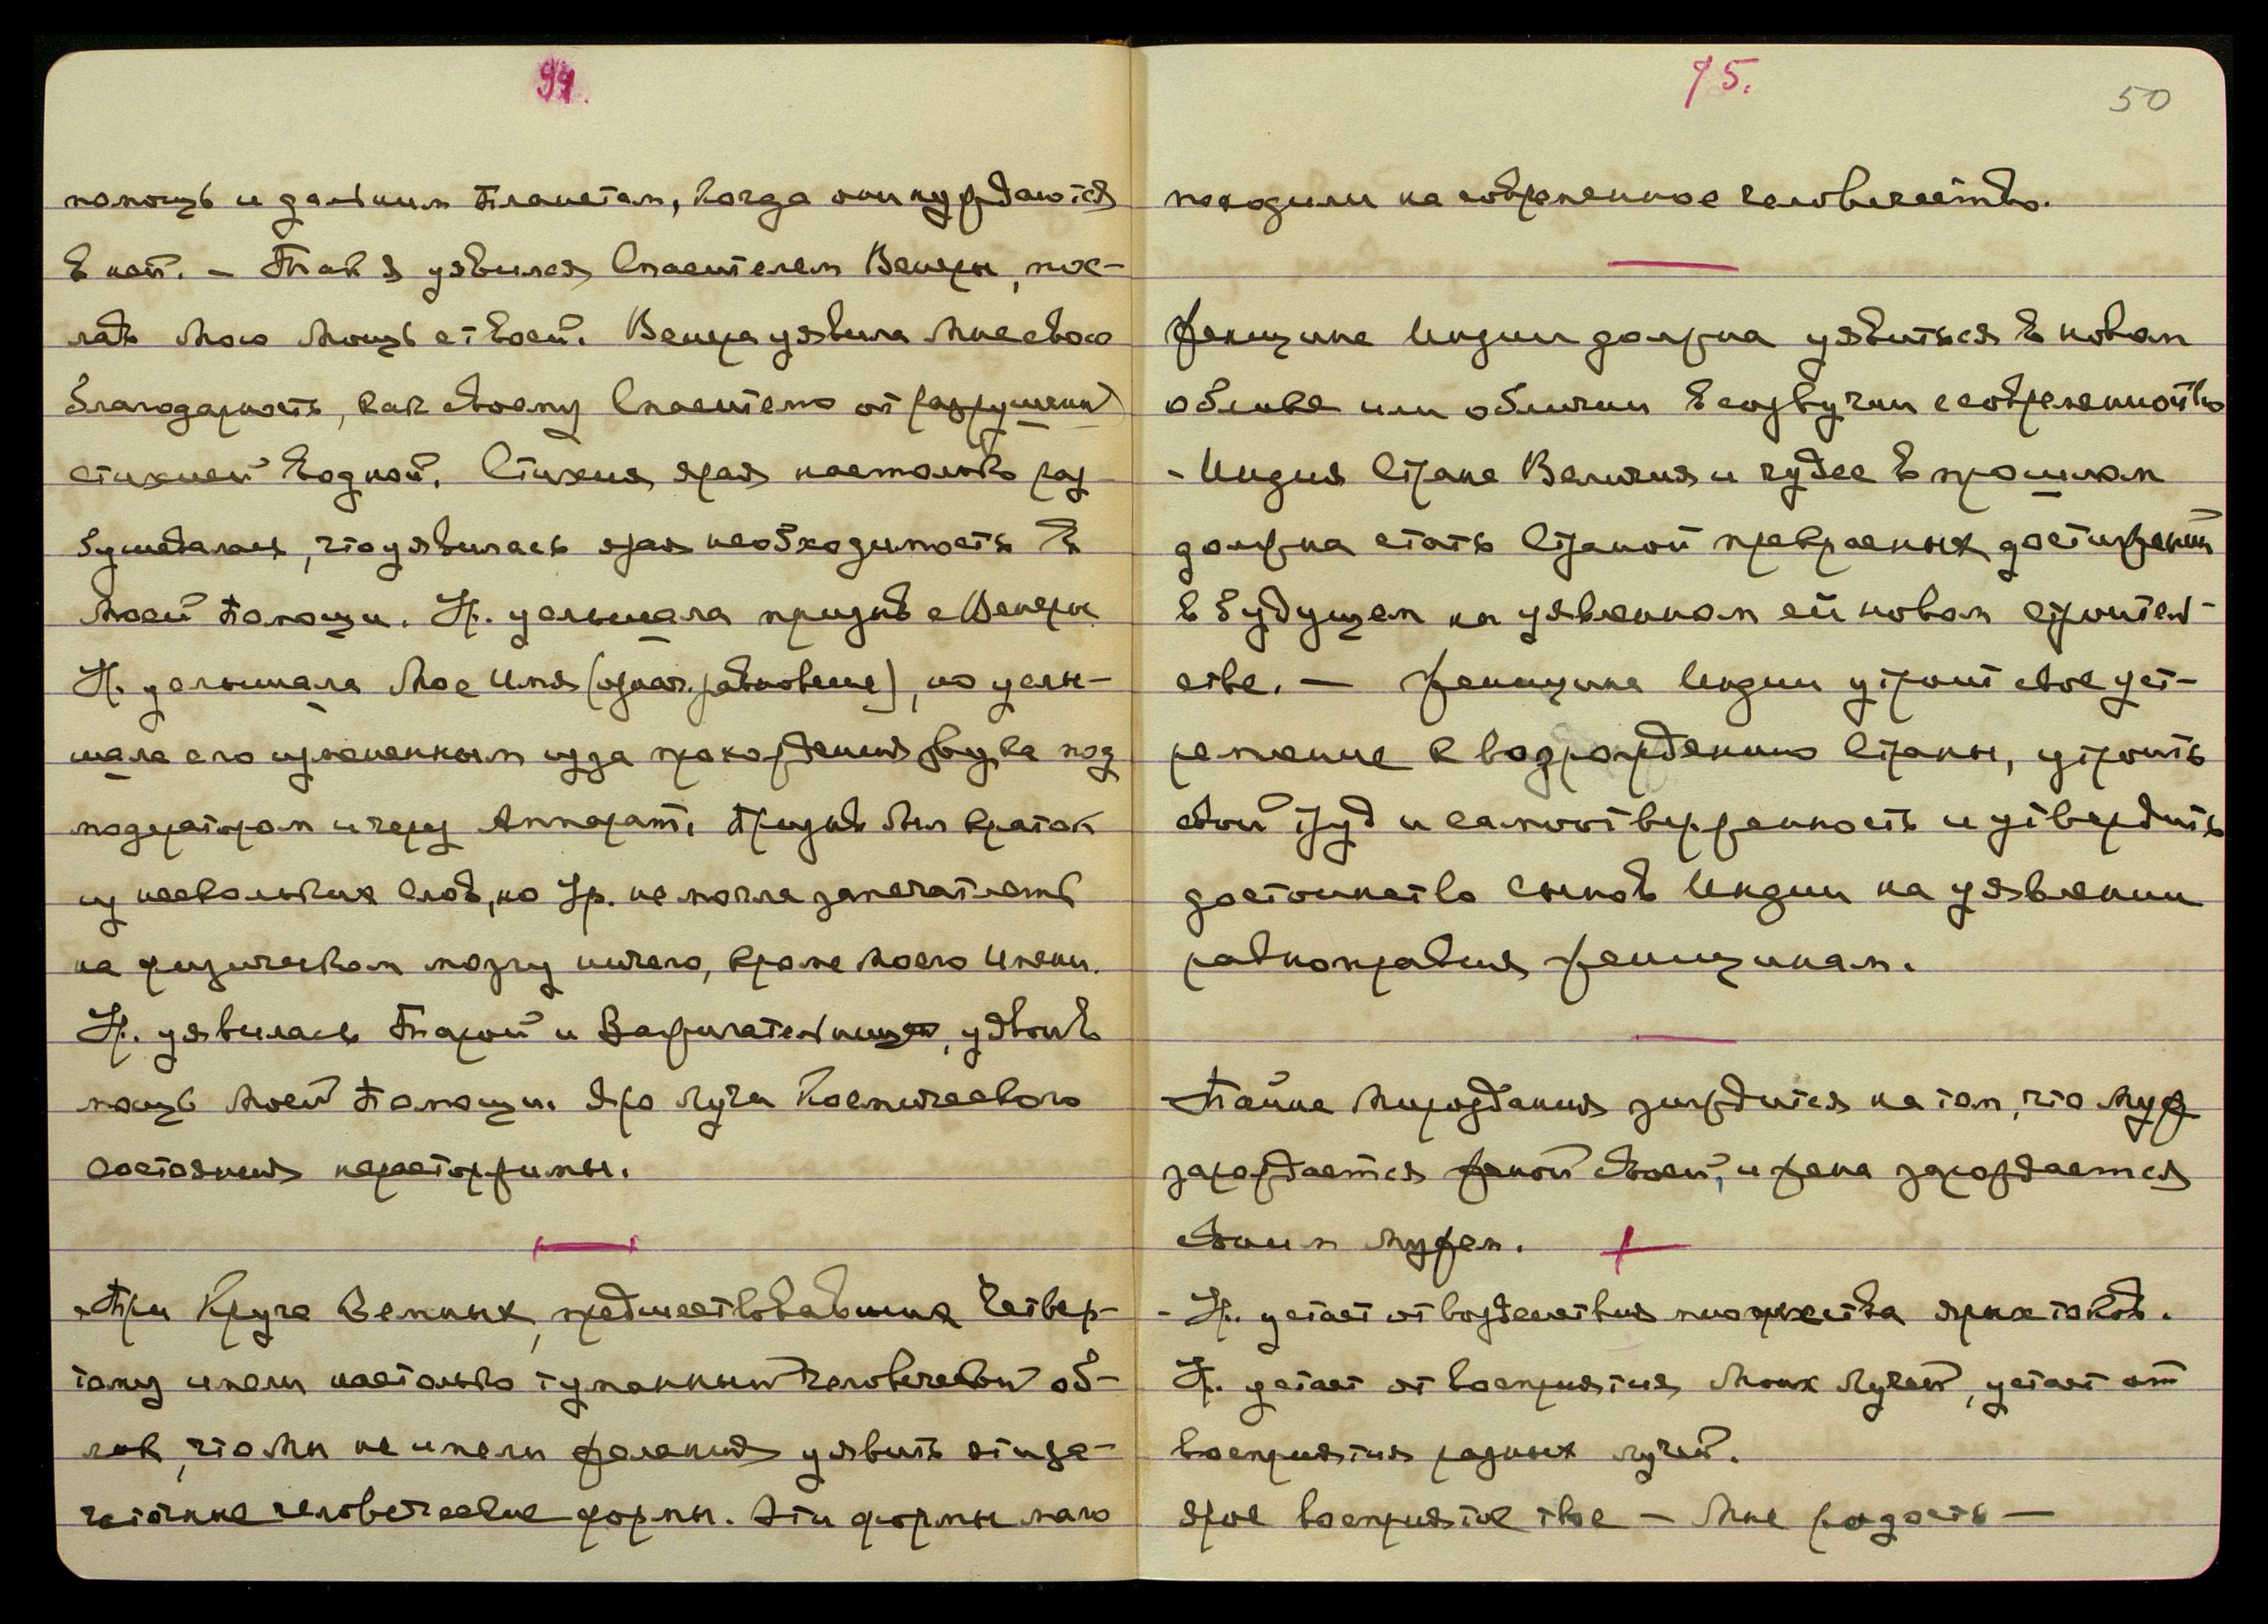 94.
помощь и дальним Планетам, когда они нуждаются
в ней. – Так Я уявился Спасителем Венеры, пос-
лав Мою Мощь с твоей. Венера уявила Мне свою
благодарность, как своему Спасителю от разрушения
стихией водной. Стихия ярая настолько раз-
бушевалась, что уявилась ярая необходимость в
Моей Помощи. Ур. услышала призыв с Венеры
Ур. услышала Мое Имя (равновесие), но услы-
шала его измененным из-за прохождения звука под
модератором и через Аппарат. Призыв был краток
из нескольких слов, но Ур. не могла запечатлеть
на физическом мозгу ничего, кроме Моего Имени.
Ур. уявилась Тарой и Зажигательницей, удвоив
мощь Моей Помощи. Яро Лучи Космического
состояния нерасторжимы.
Три Круга Земных, предшествовавших Четвер-
тому имели настолько туманный человеческий об-
лик, что Мы не имели желания уявить эти зача-
точные человеческие формы. Эти формы мало
95.
50
походили на современное человечество.
Женщина Индии должна уявиться в новом
облике или обличии в созвучии с современностью
- Индия Страна Величия и чудес в прошлом
должна стать Страной прекрасных достижений
в будущем на уявленном ей новом строитель-
стве. – Женщина Индии утроит свое уст-
ремление к возрождению Страны, утроит
свой труд и самоотверженность и утвердить
достоинство сынов Индии на уявлении
равноправия женщинам.
Тайна Мироздания зиждится на том, что муж
зарождается женой своей, и жена зарождается
своим мужем.
- Ур. устает от воздействия множества ярых токов.
Ур. устает от восприятия Моих Лучей, устает от
восприятия разных лучей.
Ярое восприятие твое – Мне радость –